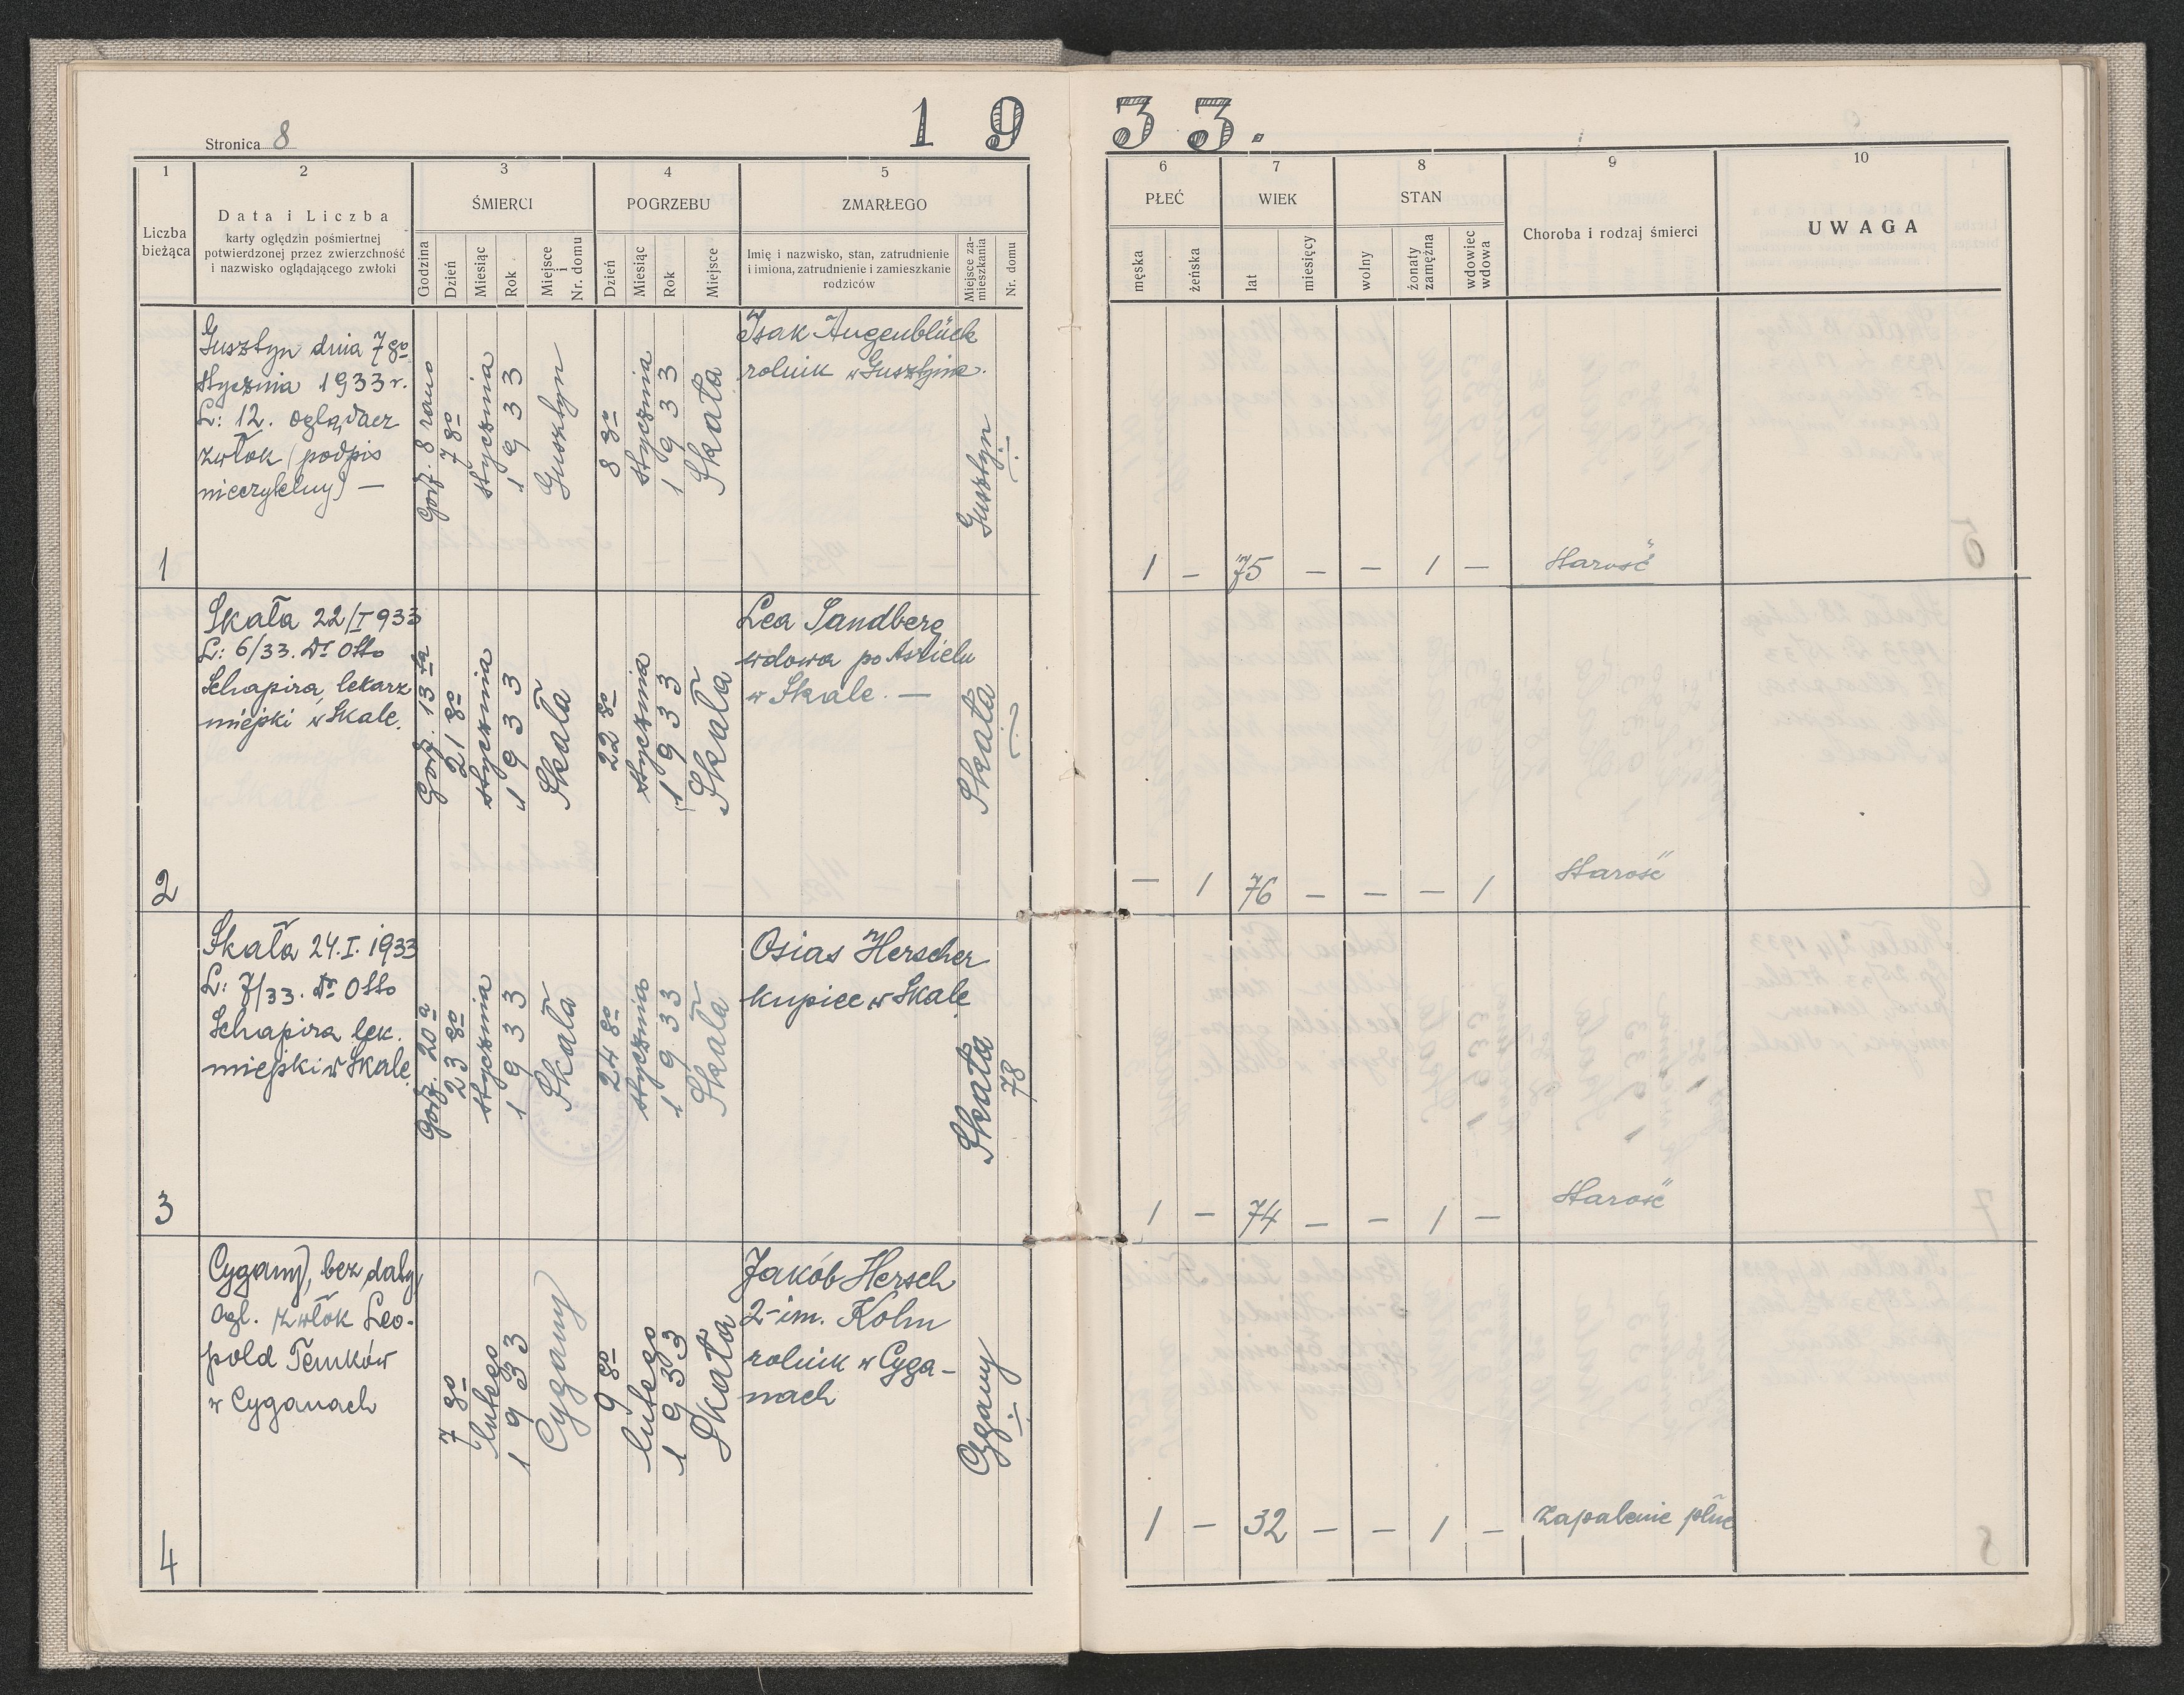 Stronica 8
1 9 3 3.
1
2
3
4
5
6
7
8
9
10
Liczba bieżąca
Data i Liczba
karty oględzin pośmiertnej
potwierdzonej przez zwierzchność
i nazwisko oglądającego zwłoki
ŚMIERCI
Godzina
Dzień
Miesiąc
Rok
Miejsce i Nr. domu
POGRZEBU
Dzień
Miesiąc
Rok
Miejsce
ZMARŁEGO
Imię i nazwisko, stan, zatrudnienie
i imiona, zatrudnienie i zamieszkanie
rodziców
Miejsce zamieszkania
Nr. domu
PŁEĆ
męska
żeńska
WIEK
lat
miesięcy
STAN
wolny
żonaty zamężna
wdowiec wdowa
Choroba i rodzaj śmierci
UWAGA
1
Gusztyn dnia 7go
stycznia 1933 r.
L: 12. oglądacz
zwłok (podpis
nieczytelny) —
Godz. 8 rano
7 go
stycznia
1 9 3 3
Gusztyn
8 go
stycznia
1 9 3 3
Skała
Isak Augenblück
rolnik w Gusztynie.
Gusztyn
1 – 75 – – 1 –
Starość
2
Skała 22/I 933
L: 6/33. Dr Otto
Schapira, lekarz
miejski w Skale.
Godz. 13ta
21 go
stycznia
1 9 3 3
Skała
22 go
stycznia
1 9 3 3
Skała
Lea Sandberg
wdowa po Aszielu
w Skale. —
Skała
– 1 76 – – – 1
Starość
3
Skała 24.I.1933
L: 7/33. Dr Otto
Schapira lek.
miejski w Skale.
Godz. 20a
23 go
stycznia
1 9 3 3
Skała
24 go
stycznia
1 9 3 3
Skała
Osias Herscher
kupiec w Skale
Skała
78
1 – 74 – – 1 –
Starość
4
Cygany, bez daty,
ogl. zwłok Leo-
pold Temków
w Cyganach
7 go
lutego
1 9 3 3
Cygany
9 go
lutego
1 9 33
Skała
Jakób Hersch
2-im. Kohn
rolnik w Cyga-
nach
Cygany
1 – 32 – – 1 –
Zapalenie płuc